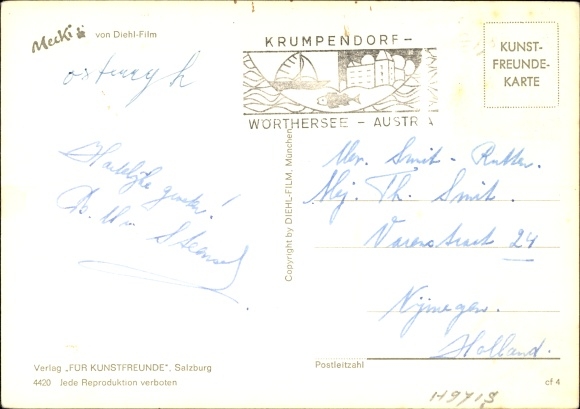 Mecki von Diehl-Film
KRUMPENDORF-
WÖRTHERSEE - AUSTRIA
KUNST-
FREUNDE-
KARTE
Hartelijke groeten!
Copyright by DIEHL-FILM, München
Mevr. Smit - Rutten.
Mej. Th. Smit.
Varenstraat 24
Nijmegen.
Holland.
Verlag „FÜR KUNSTFREUNDE", Salzburg
4420 Jede Reproduktion verboten
Postleitzahl
cf 4